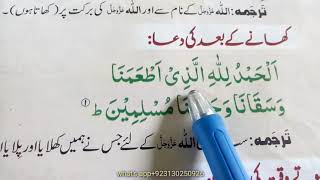 تَرجَمه: اللہ عَزَّوَجَلَّ کے نام سے اور اللہ عَزَّوَجَلَّ کی برکت پر (کھاتا ہوں)۔
کھانے کے بعد کی دعا:
اَلْحَمْدُ لِلّٰهِ الَّذِيْ اَطْعَمَنَا
وَسَقَانَا وَ نَا مُسْلِمِيْنَ ط ①
تَرجَمه: اللہ عَزَّوَجَلَّ کے لئے جس نے ہمیں کھلایا اور پلایا اور
whats app+923130250926